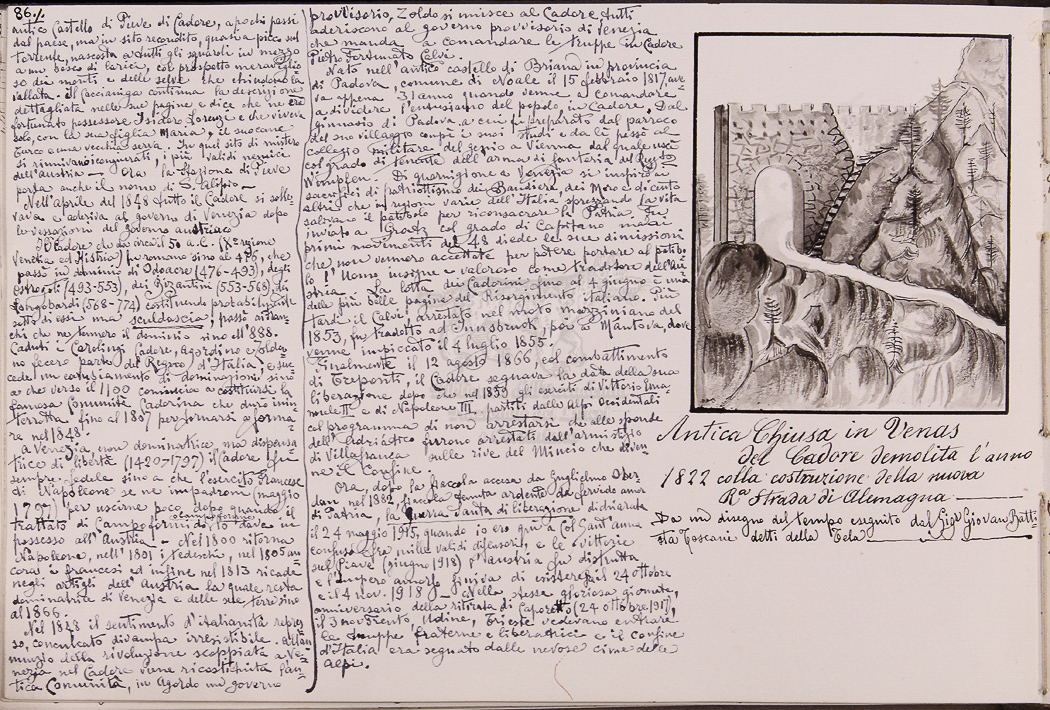 86%
antico Castello di Pieve di Cadore, a pochi passi
dal paese, ma in sito recondito, quasi a picco sul
torrente, nascosta a tutti gli sguardi in mezzo
a un bosco di larici, col prospetto meraviglio
so dei monti e delle selve che chiudono la
vallata. Il Caccianiga continua la descrizione
dettagliata nelle sue pagine e dice che ne era
fortunato possessore Isidoro Lorenzi e che viveva
solo, con la sua figlia Maria, il suo cane
Turco e una vecchia serva. In quel sito di mistero
si riunivano i congiurati, i più validi nemici
dell'Austria — Ora la Stazione di Pieve
porta anche il nome di S. Alipio —
Nell'aprile del 1848 tutto il Cadore si solle
vava e aderiva al governo di Venezia dopo
le vessazioni del governo austriaco
Il Cadore che da circa il 50 a.C. (Xª regione
Venetia ed Histria) fu romano sino al 476, che
passò in dominio di Odoacre (476-493), degli
ostrogoti (493-553), dei Bizantini (553-568), dei
Longobardi (568-774) costituendo probabilmente
sotto di essi una sculdascia, passò ai Fran
chi che ne tennero il dominio sino all'888.
Caduti i Carolingi Cadore, Agordino e Zolda
no fecero parte del Regno d'Italia; e suc
cede un susseguirsi di dominazioni sino
a che verso il 1100 comincia a costituirsi la
famosa Comunità Cadorina che durò inin
terrotta fino al 1807 per tornarsi a forma
re nel 1848.
A Venezia, non dominatrice, ma dispensa
trice di libertà (1420-1797) il Cadore fu
sempre fedele sino a che l'esercito francese
di Napoleone se ne impadronì (maggio
1797) per uscirne poco dopo quando il
trattato di Campoformido lo dava in
possesso all'Austria — Nel 1800 ritorna
Napoleone, nell'1801 i tedeschi, nel 1805 an
cora i francesi ed infine nel 1813 ricade
negli artigli dell'Austria la quale resta
dominatrice di Venezia e delle sue terre sino
al 1866.
Nel 1848 il sentimento d'italianità repres
so, conculcato divampa irresistibile. All'an
nunzio della rivoluzione scoppiata a Ve
nezia nel Cadore viene ricostituita l'an
tica Comunità, in Agordo un governo
provvisorio, Zoldo si unisce al Cadore, tutti
aderiscono al governo provvisorio di Venezia
che manda a comandare le truppe in Cadore
Pietro Fortunato Calvi.
Nato nell'antico castello di Briana in provincia
di Padova, comune di Noale il 15 febbraio 1817 ave
va appena 31 anni quando venne a comandare
a dividere l'entusiasmo del popolo, in Cadore. Dal
ginnasio di Padova a cui fu preparato dal parroco
del suo villaggio compì i suoi studi e da lì passò al
collegio militare del genio a Vienna dal quale uscì
col grado di tenente dell'arma di fanteria del Regto
Wimpfen. Di guarnigione a Venezia si inspirò ai
sacrifici di patriottismo dei Bandiera, dei Moro e di cento
altri che in regioni varie dell'Italia sprezzando la vita
salivano il patibolo per riconsacrare la Patria. Fu
inviato a Gratz col grado di Capitano ma ai
primi movimenti del 48 diede le sue dimissioni
che non vennero accettate per potere portare al patibo
lo l'Uomo insigne e valoroso come traditore dell'Au
stria. La lotta dei Cadorini fino al 4 giugno è una
delle più belle pagine del Risorgimento italiano. Più
tardi il Calvi, arrestato nel moto mazziniano del
1853, fu tradotto ad Innsbruck, poi a Mantova, dove
venne impiccato il 4 luglio 1855.
Finalmente il 12 agosto 1866, col combattimento
di Treponti, il Cadore segnava la data della sua
liberazione dopo che nel 1859 gli eserciti di Vittorio Ema
nuele II e di Napoleone III partiti dalle Alpi Occidentali
col programma di non arrestarsi che alle sponde
dell'Adriatico furono arrestati dall'armistizio
di Villafranca sulle rive del Mincio che diven
ne il Confine.
Ora, dopo la fiaccola accesa da Guglielmo Ober
dan nel 1882, fiaccola tenuta ardente da fervido amor
di Patria, la Guerra Santa di liberazione, dichiarata
il 24 maggio 1915, quando io ero già a Col Sant'Anna
confuso fra mille validi difensori, e le vittorie
sul Piave (giugno 1918) l'Austria fu distrutta
e l'Impero austriaco finiva di esistere il 24 ottobre
e il 4 nov. 1918 — Nella stessa gloriosa giornata,
anniversario della ritirata di Caporetto (24 ottobre 1917),
il 3 novembre, Udine, Trieste vedevano entrare
le truppe fraterne e liberatrici e il Confine
d'Italia era segnato dalle nevose cime delle
Alpi.
Antica Chiusa in Venas
del Cadore demolita l'anno
1822 colla costruzione della nuova
Rª Strada di Alemagna
Da un disegno del tempo eseguito dal Sigr Giovan Batti
sta Toscani detti della Tela